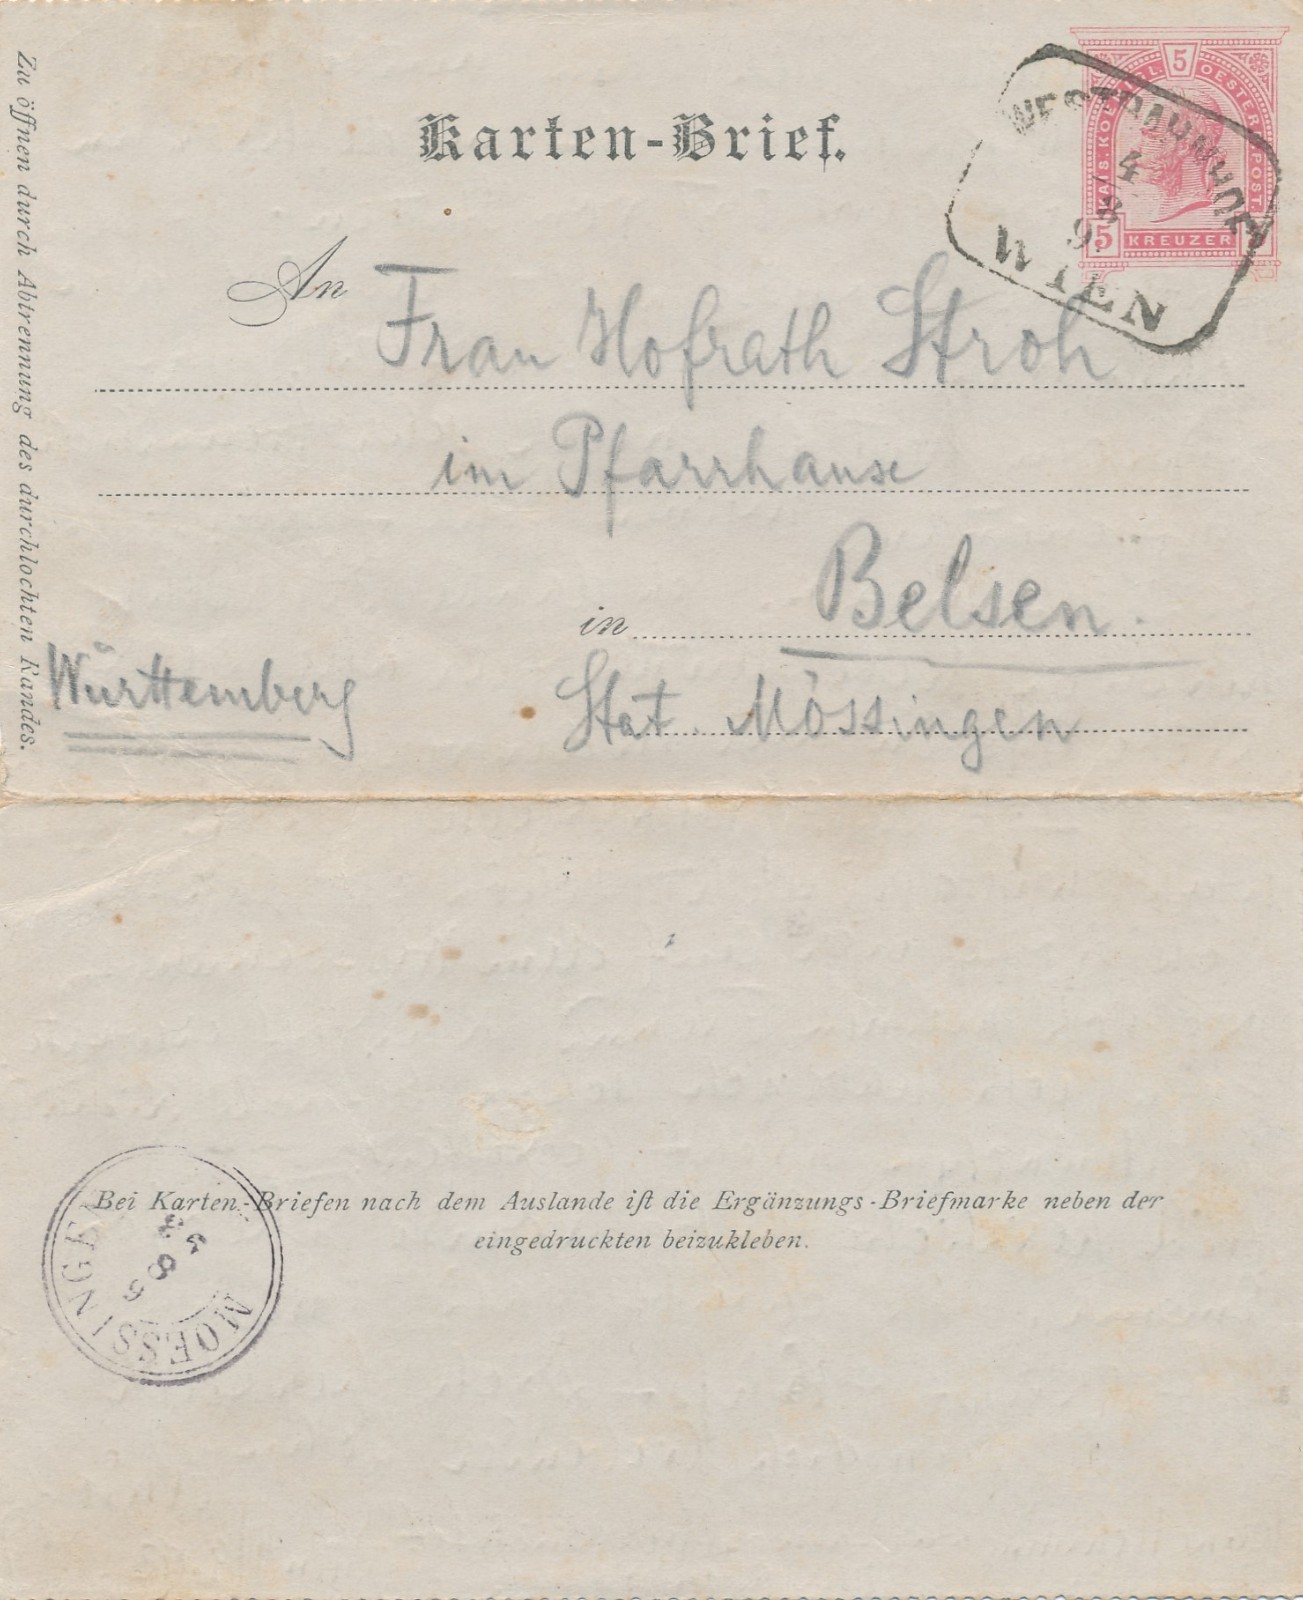 Karten-Brief.
KAIS. KÖNIGL. OESTERR. POST
5
5 KREUZER
WESTBAHNHOF
4
8
WIEN
Zu öffnen durch Abtrennung des durchlochten Randes.
An Frau Hofrath Stroh
im Pfarrhause
in Belsen.
Württemberg
Stat. Mössingen
Bei Karten-Briefen nach dem Auslande ist die Ergänzungs-Briefmarke neben der
eingedruckten beizukleben.
MOESSINGEN
8